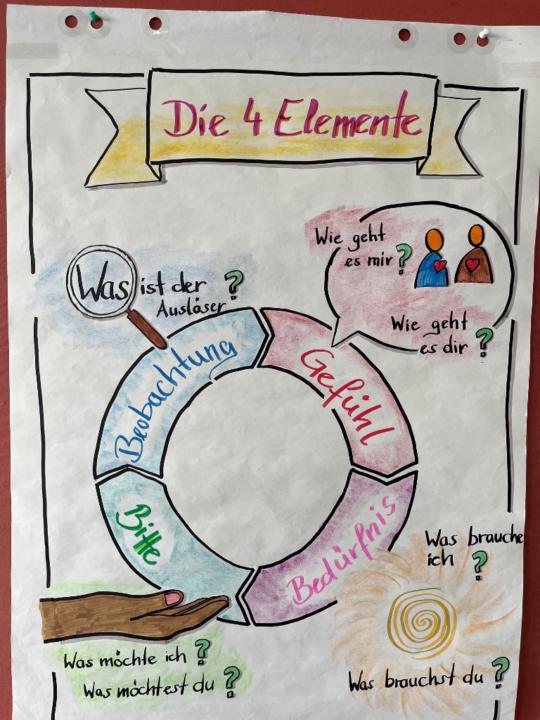 Die 4 Elemente
Wie geht
es mir?
Was ist der ?
Auslöser
Wie geht
es dir ?
Beobachtung
Gefühl
Bitte
Bedürfnis
Was brauche
ich ?
Was möchte ich ?
Was möchtest du ?
Was brauchst du ?